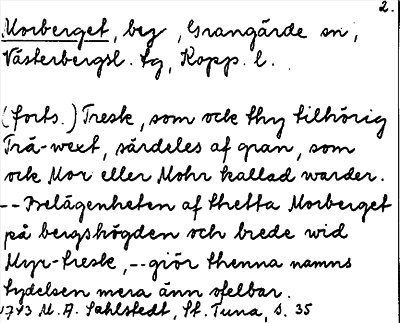 2.
Morberget, berg, Grangärde sn,
Västerbergsl. tg, Kopp. l.
(forts.) Tresk, som ock thy tilhörig
Trä-wext, särdeles af gran, som
ock Mor eller Mohr kallad warder.
-- Belägenheten af thetta Morberget
på bergshögden och brede wid
Myr-tresk, -- giör thenna namns
tydelsen mera änn ofelbar.
1743 M. A. Sahlstedt, St. Tuna, s. 35